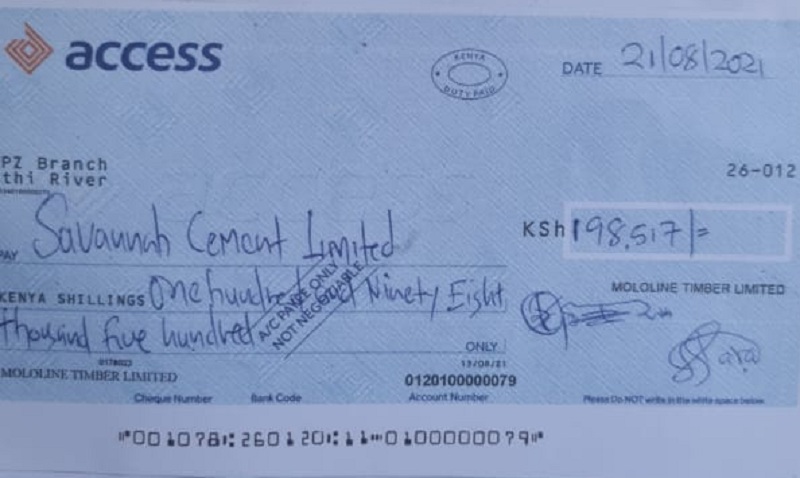 access
KENYA
DUTY PAID
DATE 21/08/2021
PZ Branch
thi River
26-012
PAY Savannah Cement Limited
KSh 198,517/=
KENYA SHILLINGS One hundred and Ninety Eight
thousand five hundred
A/C PAYEE ONLY
NOT NEGOTIABLE
ONLY
MOLOLINE TIMBER LIMITED
13/08/21
MOLOLINE TIMBER LIMITED
0120100000079
Cheque Number Bank Code Account Number Please Do NOT write in the white space below
⑈001078⑆260120⑆11⑉0100000079⑈